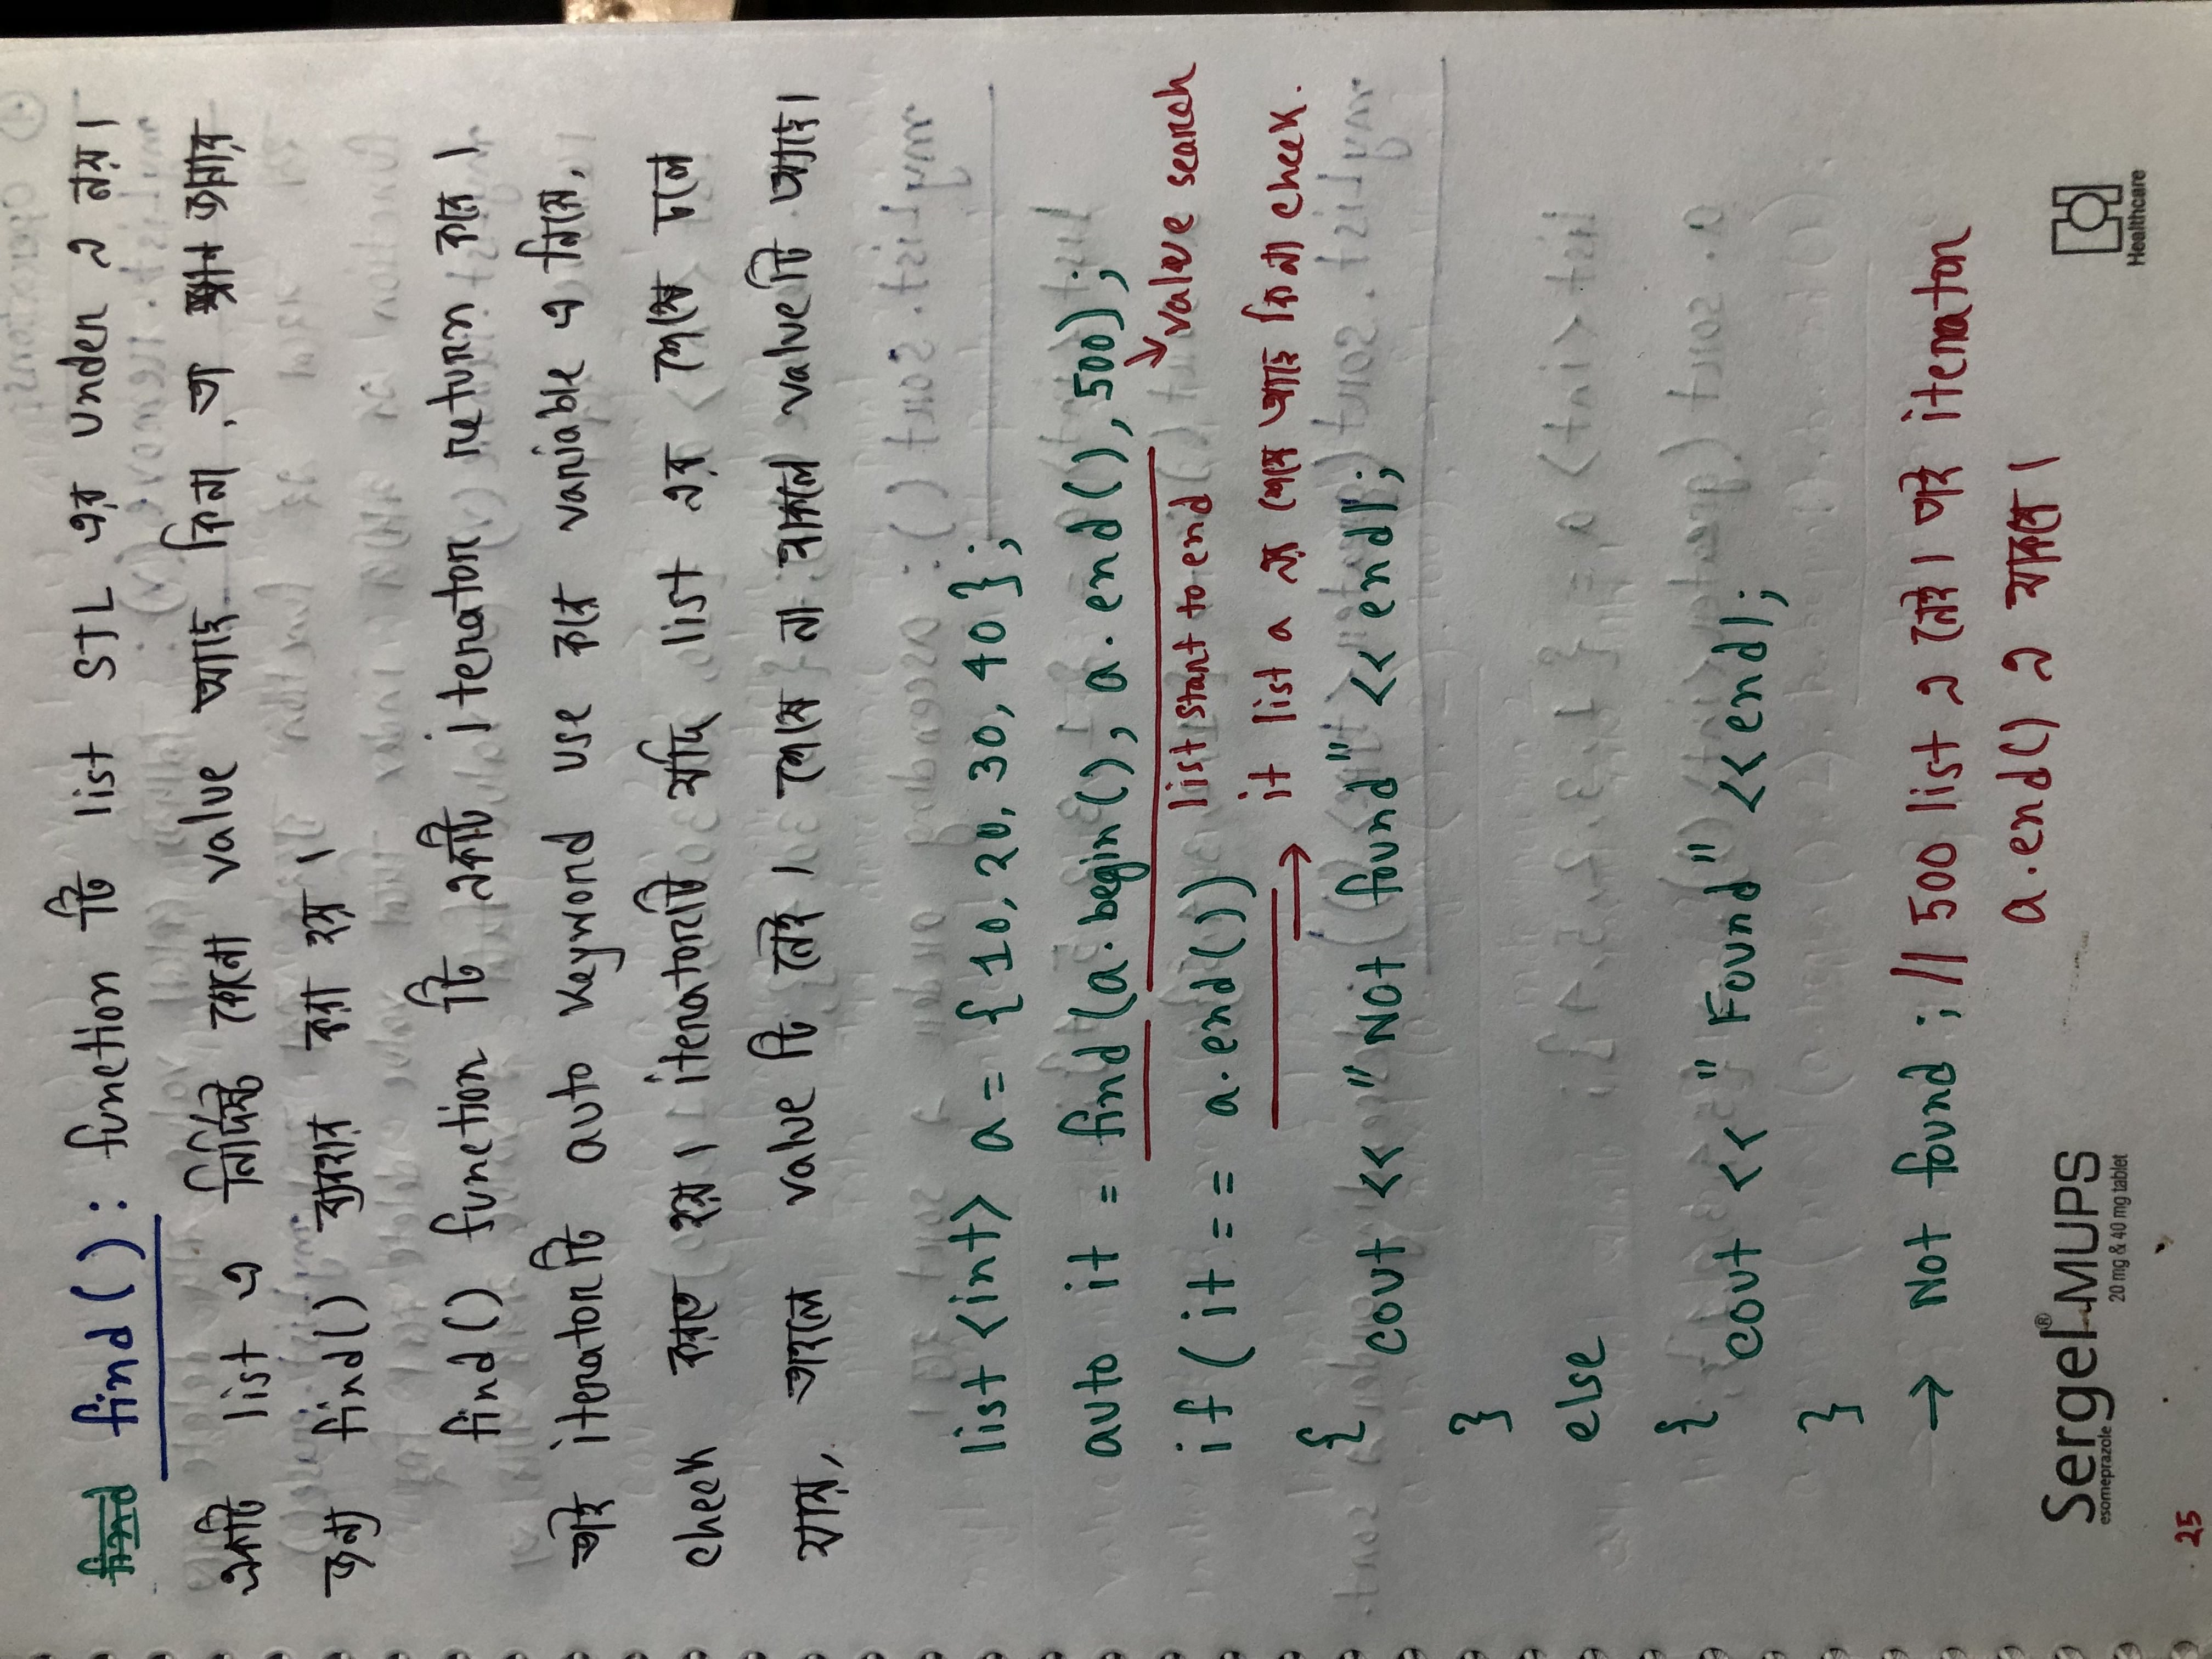 find() : function টি list STL এর under এ নয়।
একটি list এ নির্দিষ্ট কোনো value আছে কিনা, তা জানার
জন্য find() ব্যবহার করা হয়।
find() function টি একটি iterator return করে।
তাই iterator টি auto keyword use করে variable এ নিয়ে,
check করতে হয়। iterator টি যদি list এর শেষে চলে
যায়, তাহলে value টি নেই। শেষে না থাকলে value টি আছে।
list <int> a = {10, 20, 30, 40};
auto it = find (a.begin(), a.end(), 500);
list start to end
value search
if ( it == a.end())
→ it list a এর শেষে আছে কিনা check.
{
cout << "Not found" << endl;
}
else
{
cout << "Found" << endl;
}
→ Not found ; // 500 list এ নেই। তাই iterator
a.end() এ থাকবে।
Sergel® MUPS
esomeprazole
20 mg & 40 mg tablet
Healthcare
25